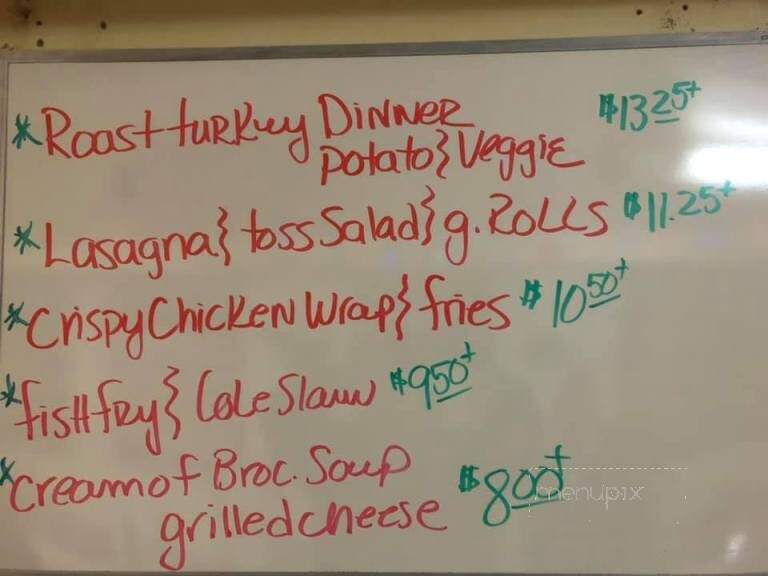 * Roast turkey Dinner $13 25+
potato } Veggie
* Lasagna } toss Salad } g. Rolls $11.25+
* Crispy Chicken Wrap } fries $10 50+
* fish fry } Cole Slaw $9 50+
* Cream of Broc. Soup $8 00+
grilled cheese
menupix